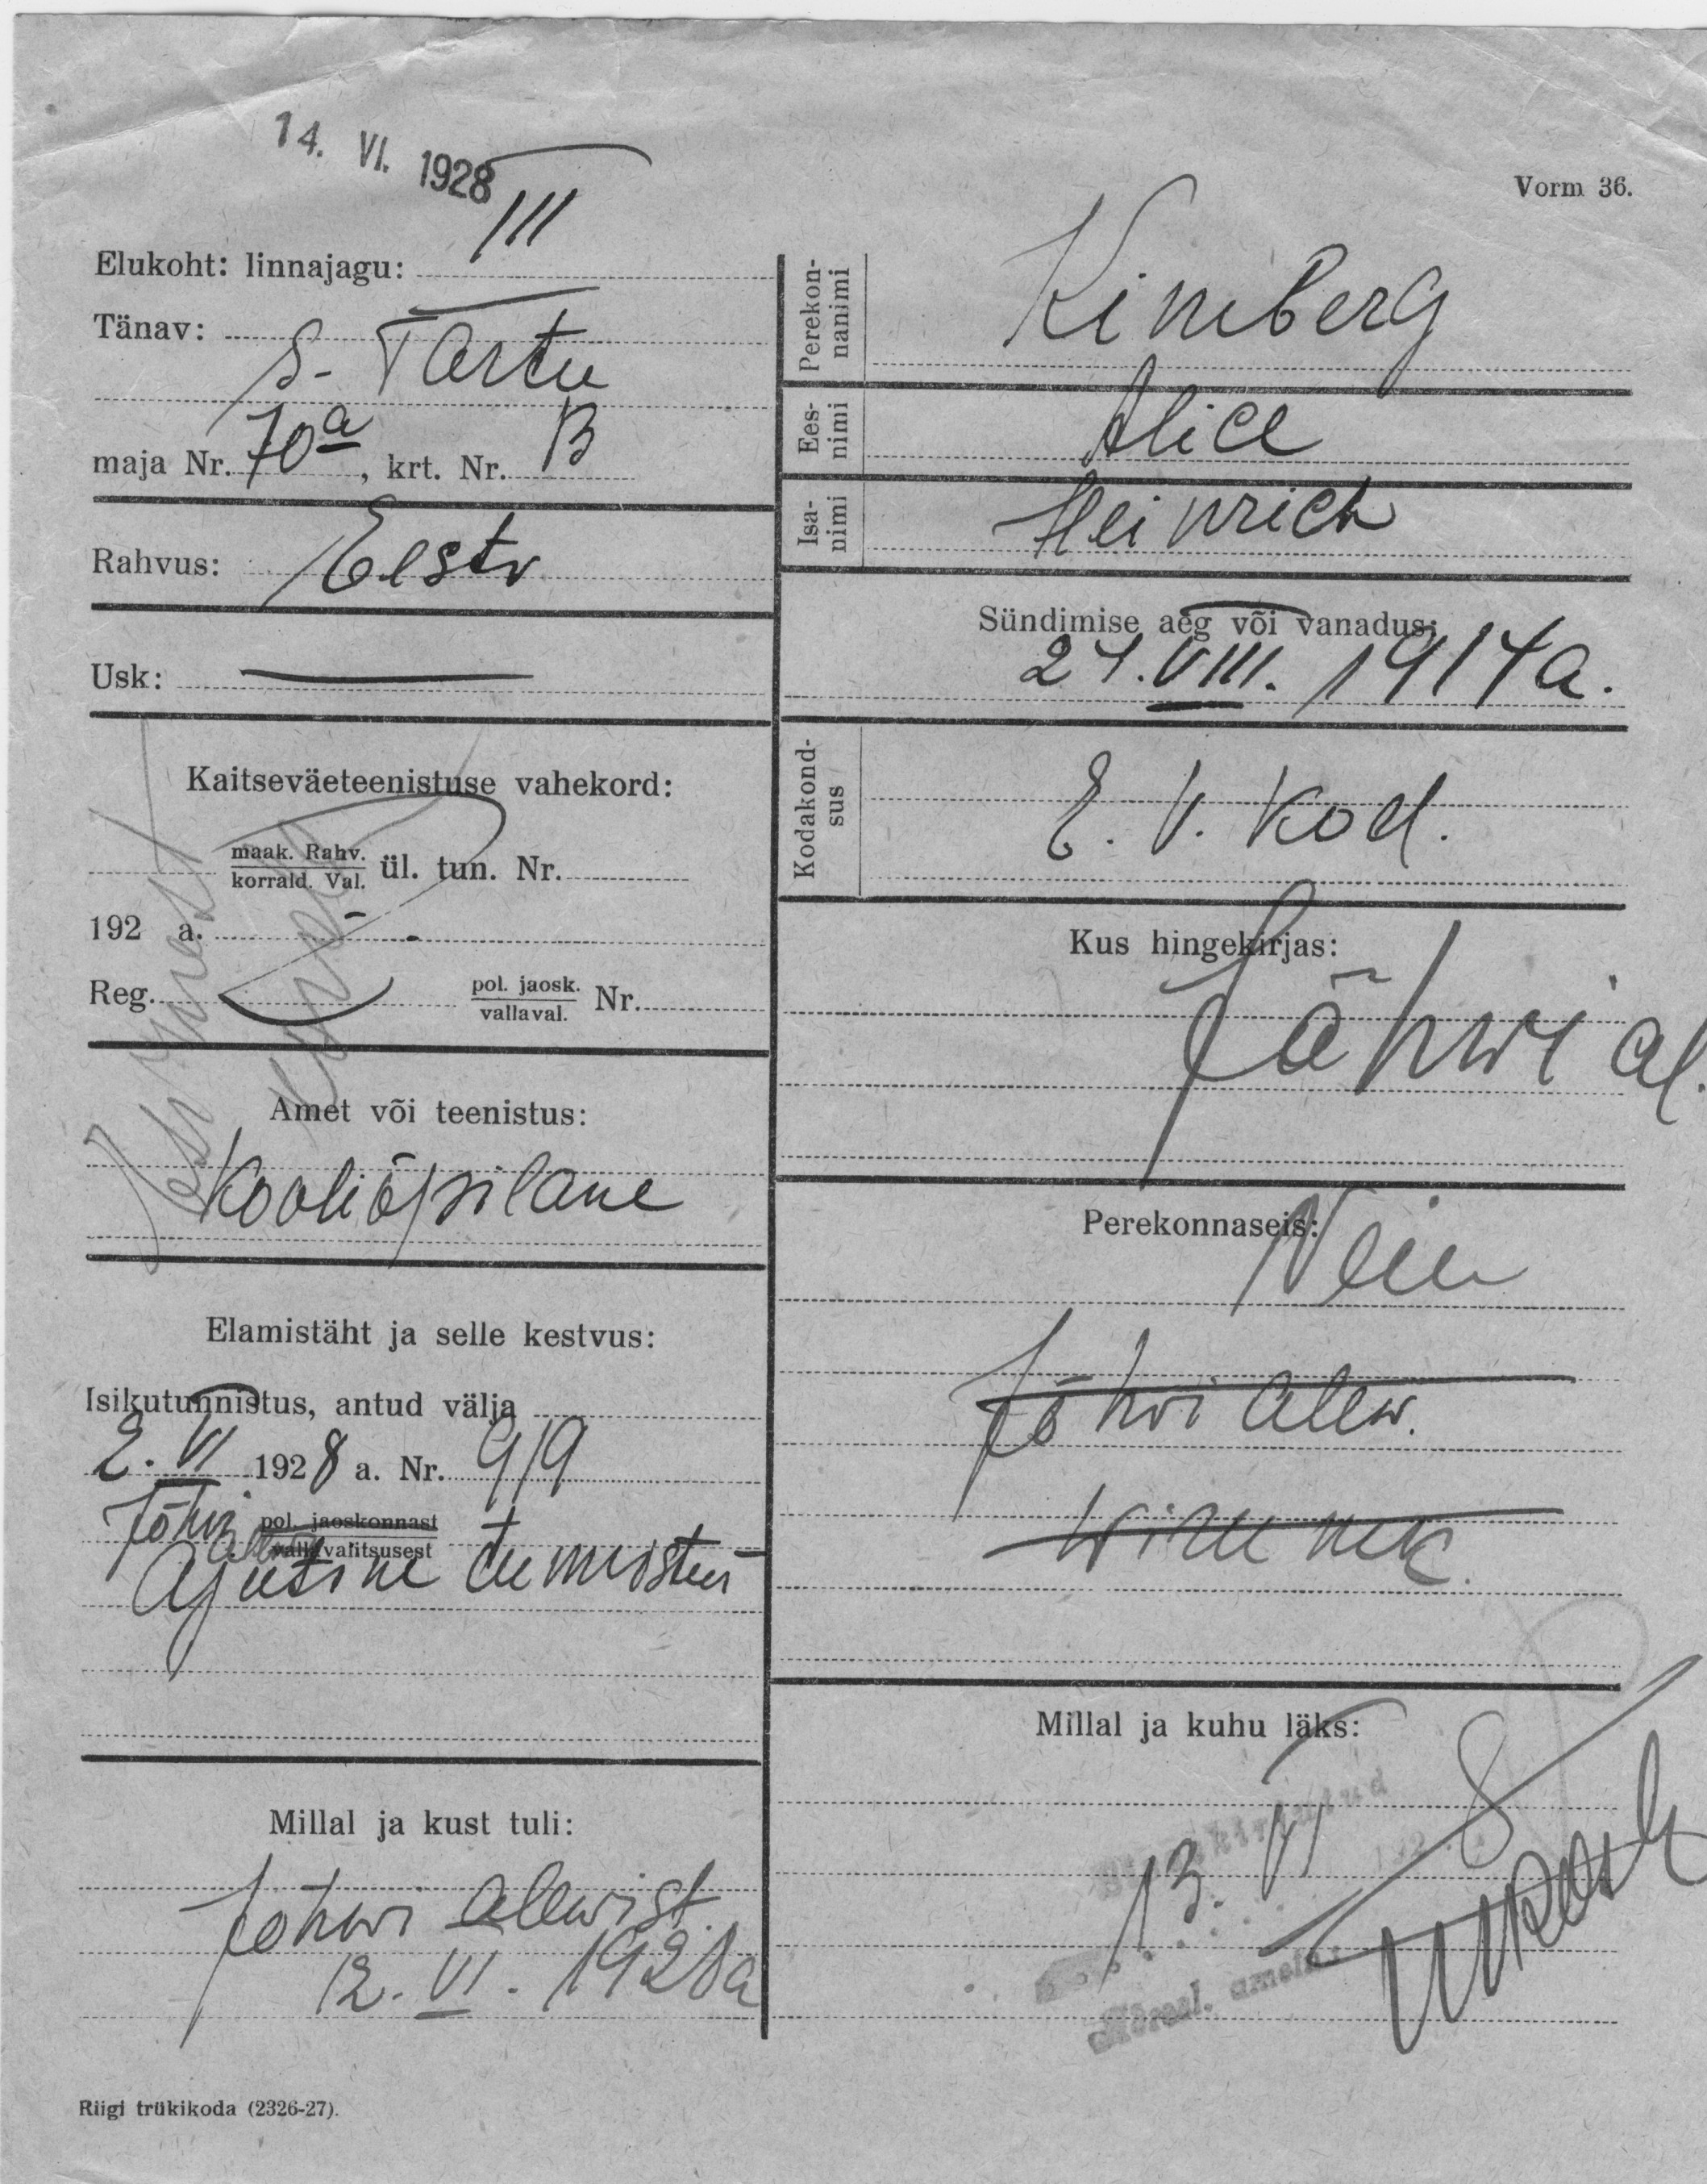 14. VI. 1928
Vorm 36.
Elukoht: linnajagu: III
Tänav: S. Tartu
maja Nr. 70a, krt. Nr. 13
Rahvus: Eesti
Usk: —
Kaitseväeteenistuse vahekord:
maak. Rahv.
korrald. Val. ül. tun. Nr.
192 a.
Reg. pol. jaosk.
vallaval. Nr.
Amet või teenistus:
Kooliõpilane
Elamistäht ja selle kestvus:
Isikutunnistus, antud välja
2. VI 1928 a. Nr. 919
Jõhvi pol. jaoskonnast
vallavalitsusest
Ajutine
Millal ja kust tuli:
Jõhwi alewist
12. VI. 1928a
Riigi trükikoda (2326-27).
Perekon-
nanimi Kimberg
Ees-
nimi Alice
Isa-
nimi Heinrich
Sündimise aeg või vanadus:
24. VIII. 1914a.
Kodakond-
sus E. V. Kod.
Kus hingekirjas:
Jõhwi al.
Perekonnaseis:
Jõhvi alew.
Wiru mk.
Millal ja kuhu läks:
13. VI